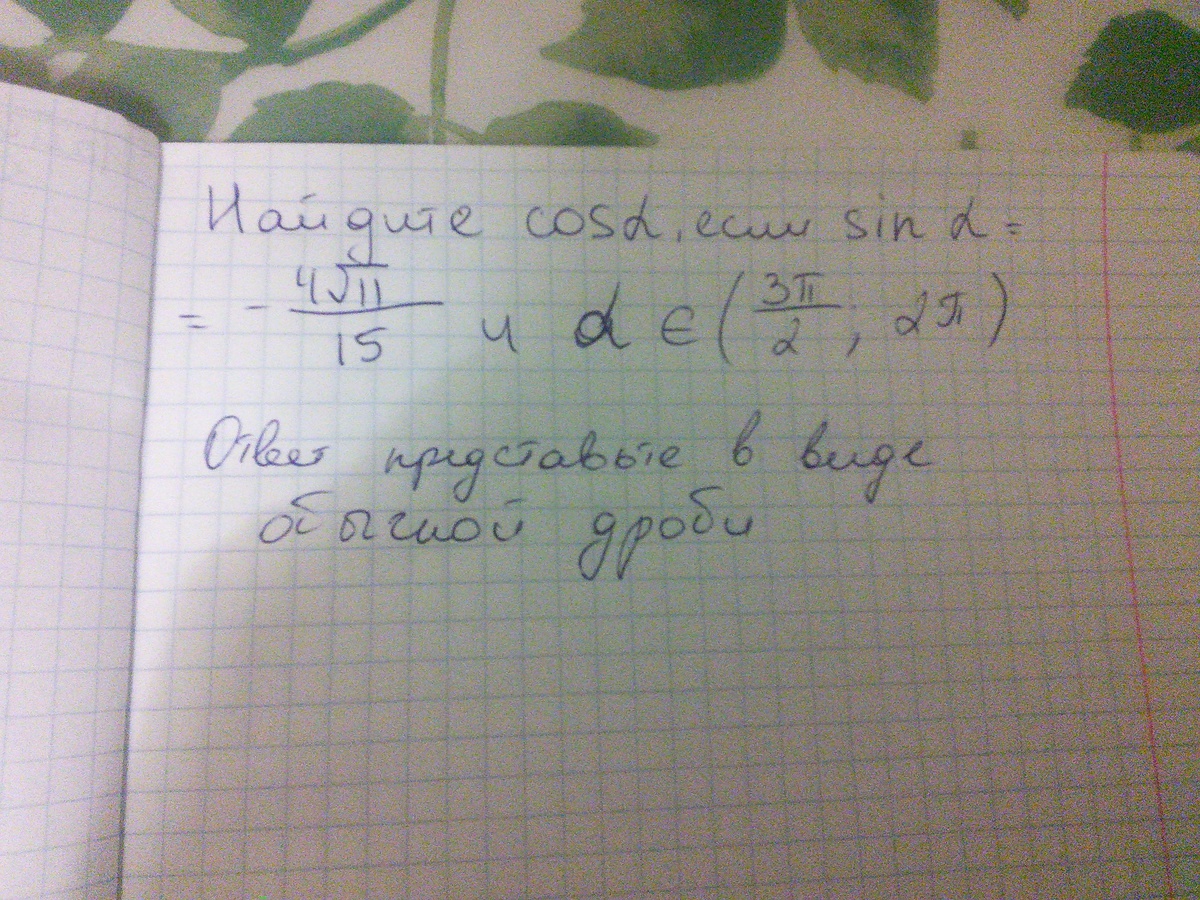 Найдите cosα, если sin α =
= - 4√11/15 и α ∈ (3π/2; 2π)
Ответ представьте в виде
обычной дроби